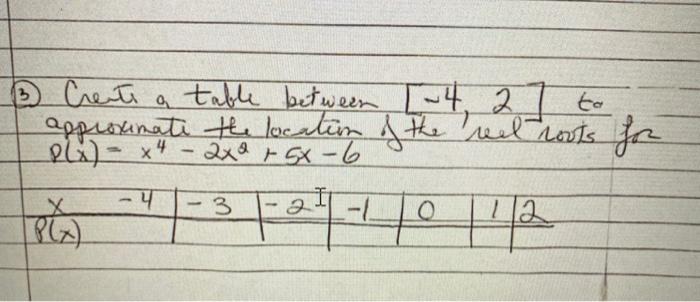 ③ Create a table between [-4, 2] to
approximate the location of the real roots for
P(x) = x⁴ - 2x² + 5x - 6
x -4 -3 -2 -1 0 1 2
P(x)